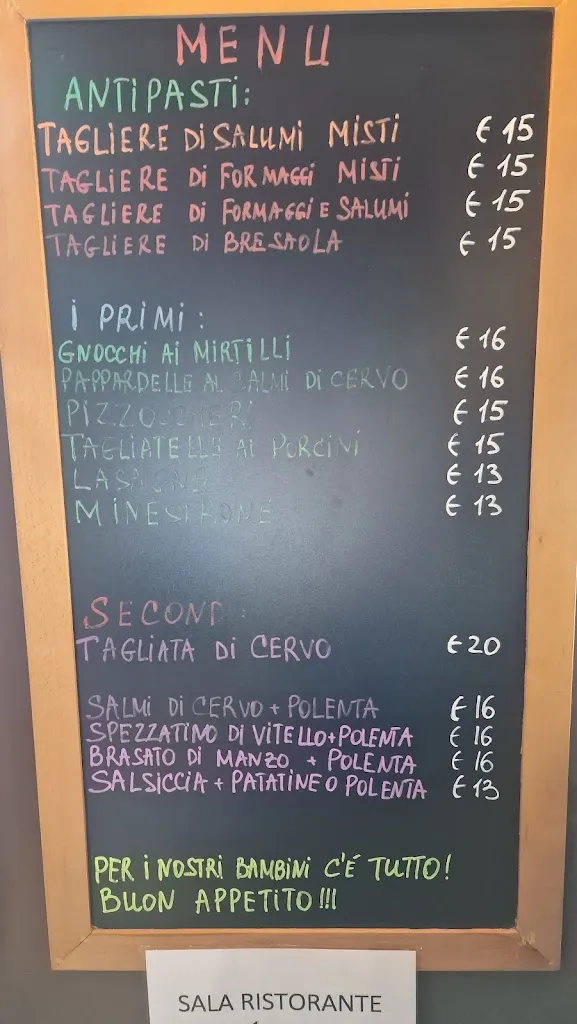 MENU
ANTIPASTI:
TAGLIERE DI SALUMI MISTI € 15
TAGLIERE DI FORMAGGI MISTI € 15
TAGLIERE DI FORMAGGI E SALUMI € 15
TAGLIERE DI BRESAOLA € 15
I PRIMI:
GNOCCHI AI MIRTILLI € 16
PAPPARDELLE AL SALMI DI CERVO € 16
PIZZOCCHERI € 15
TAGLIATELLE AI PORCINI € 15
LASAGNE € 13
MINESTRONE € 13
SECONDI:
TAGLIATA DI CERVO € 20
SALMI DI CERVO + POLENTA € 16
SPEZZATINO DI VITELLO + POLENTA € 16
BRASATO DI MANZO + POLENTA € 16
SALSICCIA + PATATINE O POLENTA € 13
PER I NOSTRI BAMBINI C'É TUTTO!
BUON APPETITO!!!
SALA RISTORANTE